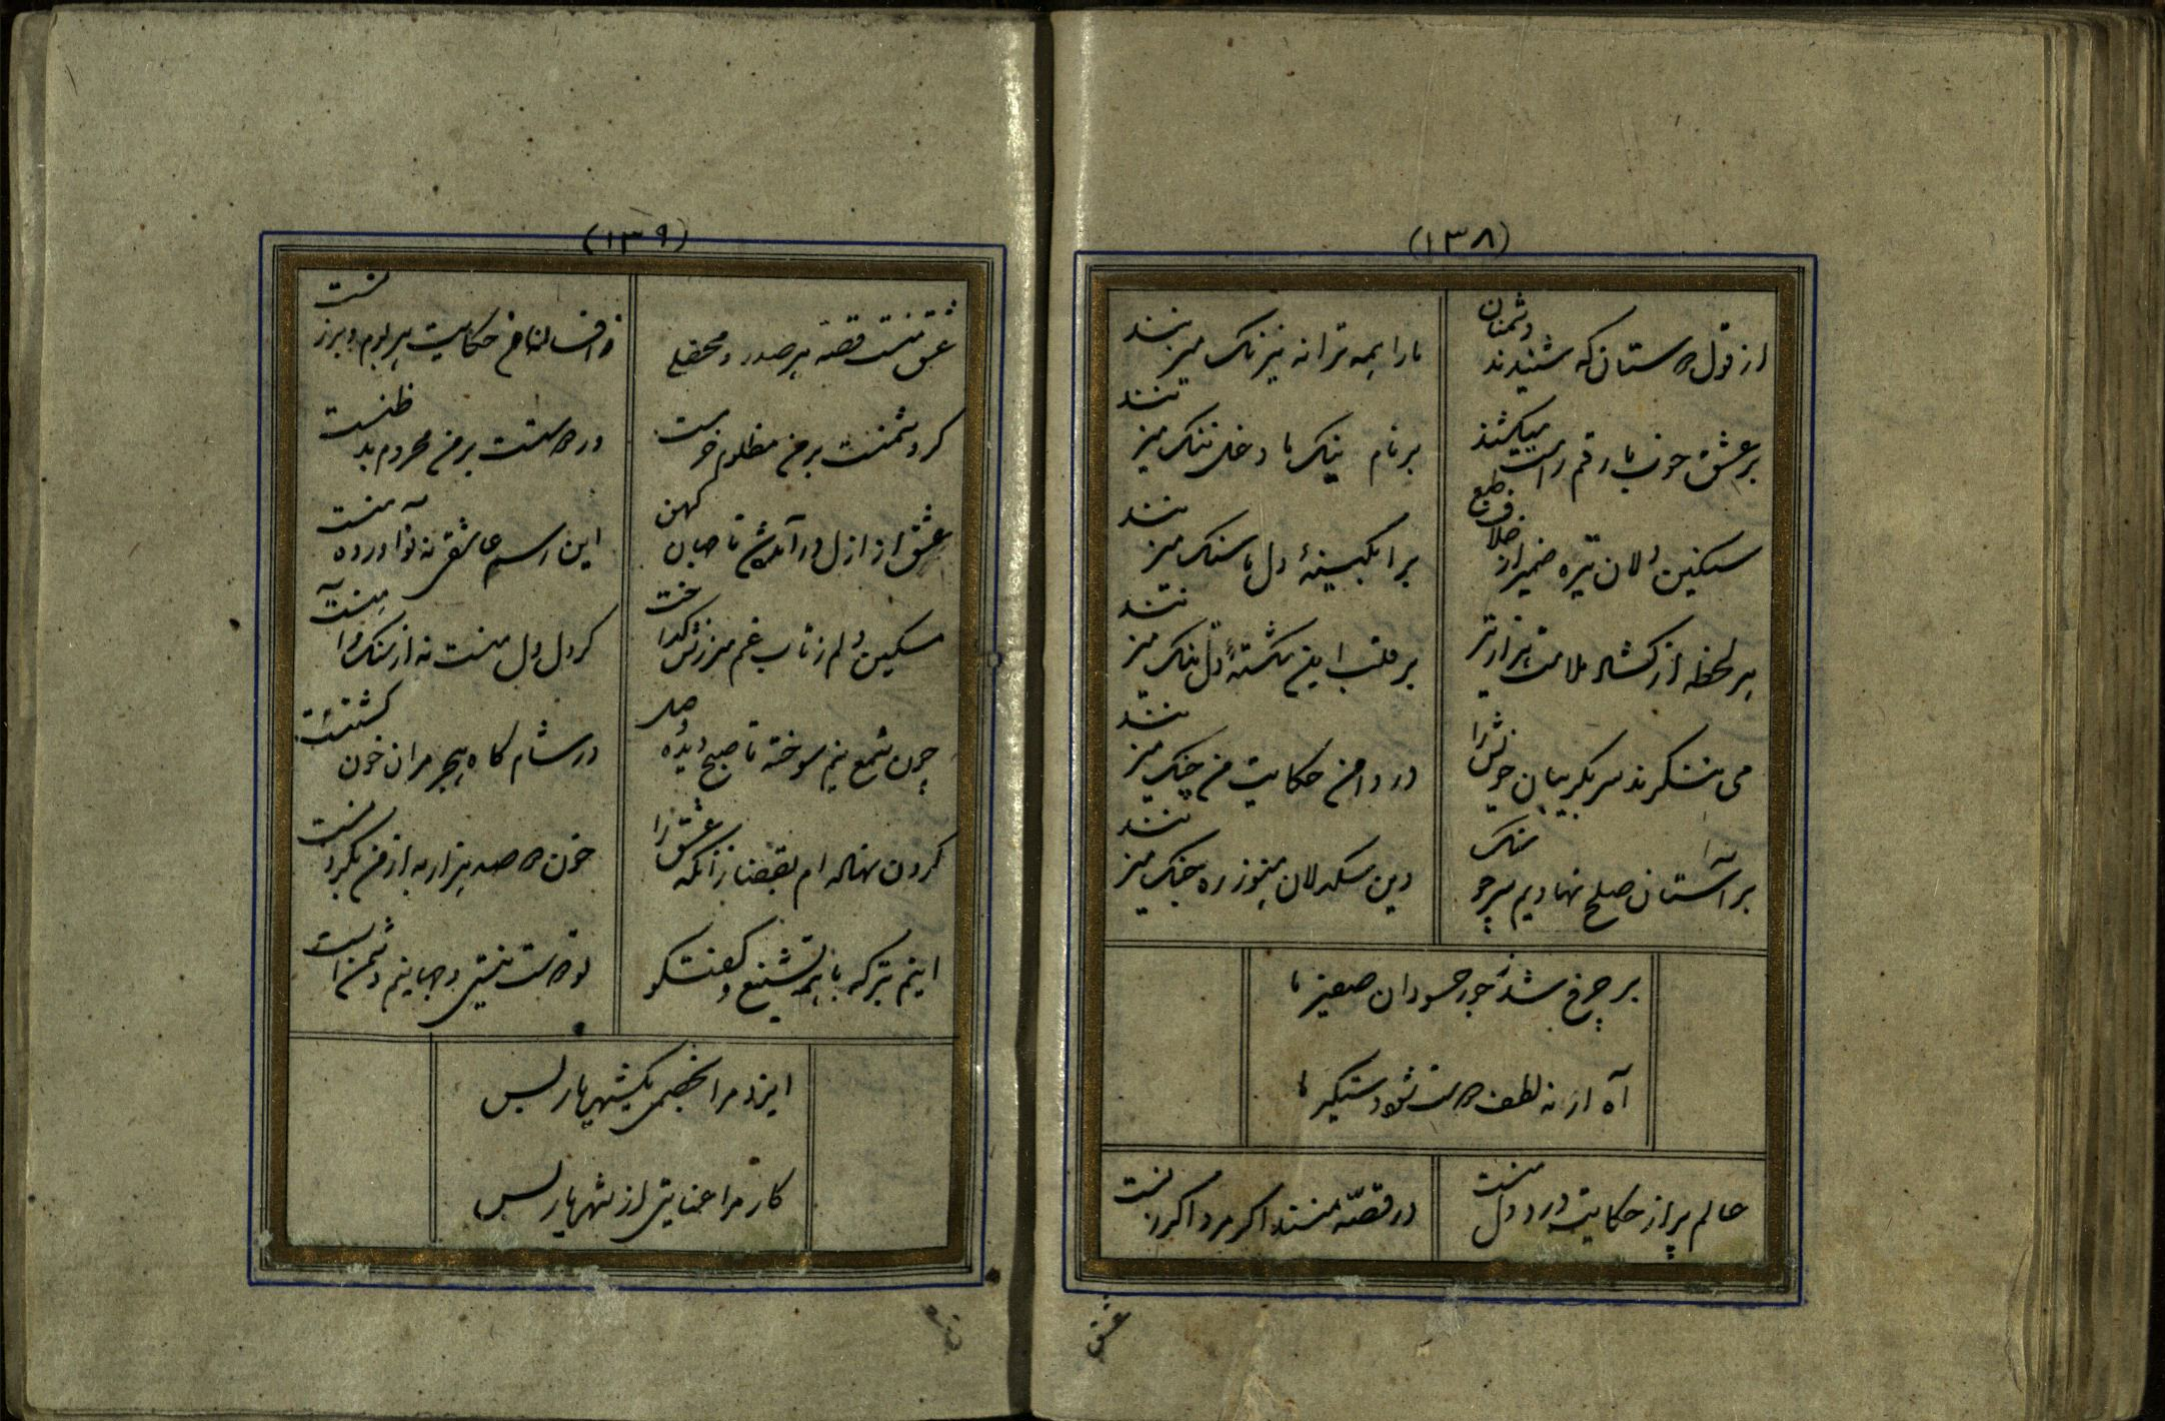 (۱۳۸)
از قول دوستان که شنیدند دشمنان
ما را بهمه ترانه نیرنک میزنند
بر عشق خوب ما رقم راست میکشند
بر نام نیک ما دخل ننک میزنند
سنکین دلان تیره ضمیر از خلاف طبع
بر ابکینهٔ دل ما سنک میزنند
هر لحظه از ملامت هزار تیر
بر قلب این شکستهٔ دل تنک میزنند
می ننکرند سر بکریبان خویش را
در دامن حکایت من چنک میزنند
بر آستان صلح نهادیم سر چو
وین سنکدلان هنوز ره جنک میزنند
بر چرخ شد ز جور حسودان صفیر ما
آه ار نه لطف دوست شود دستکیر ما
عالم پر از حکایت درد دل منست
در قصهٔ منند اکر مرد اکر زنست
عشق
(۱۳۹)
عشقت قصه هر صدر و محفلی
و افسانه حکایت هر بوم و برزنست
کر دشمنست بر من مظلوم
ور دوست بر من محروم بد ظنست
عشق از ازل در آمد تا جهان کهن
این رسم عاشقی نه نو آورده منست
مسکین دلم ز تاب غم سرزنش کداخت
کر دل دل منست نه از سنک و آهنست
چون شمع نیم سوخته تا صبح وصل
در شام کاه هجر مران خون کشتنست
کردن نهاده ام بقضا زانکه عشق را
خون دو صد هزار به از من بکردنست
اینم بتر که با همه تشنیع و کفتکو
تو دوست نیستی و جهانیم دشمن است
ایزد مرا بخصمی یکشهر یار بس
کار مرا عنایتی از شهریار بس